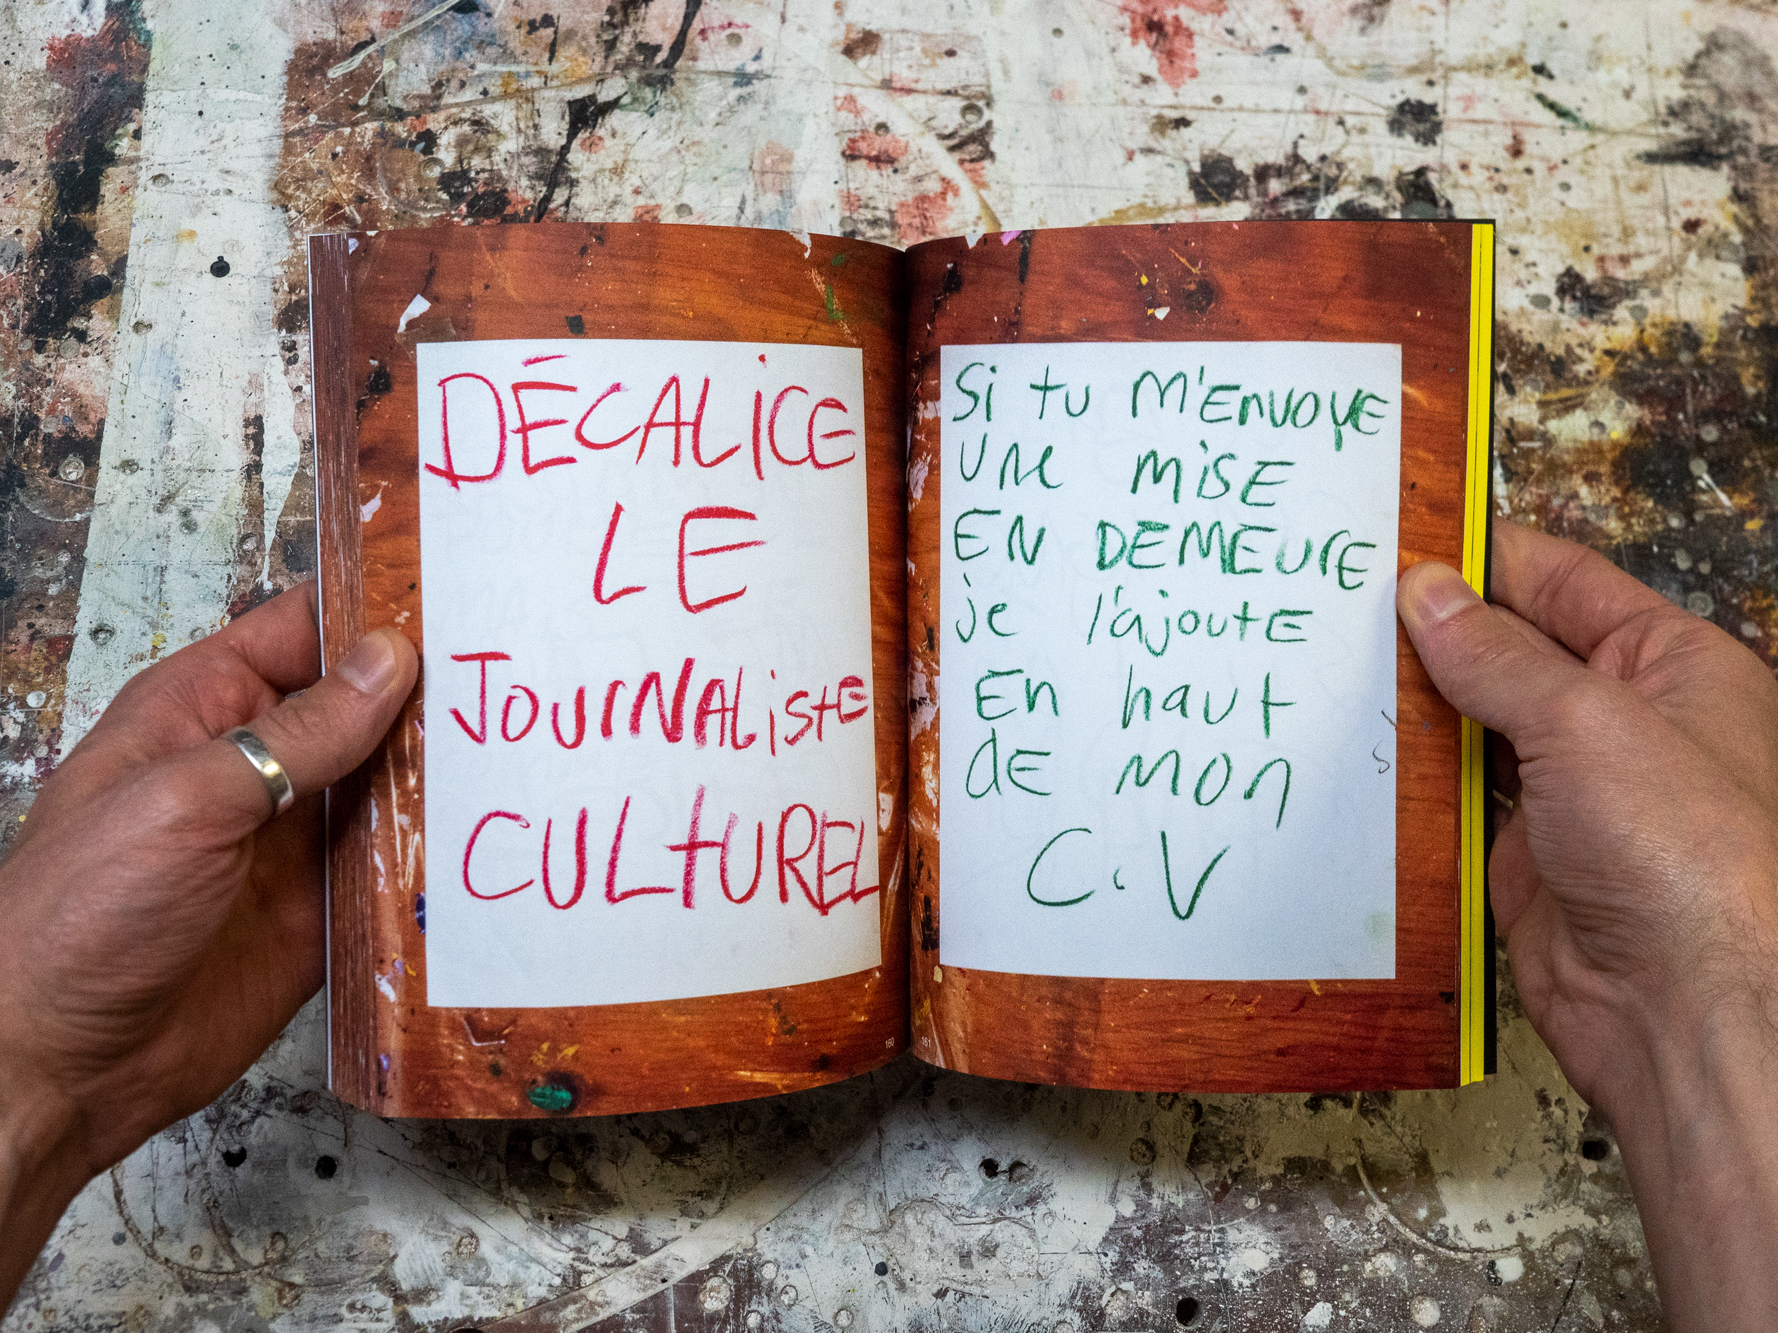 DÉCALICE
LE
JOURNALISTE
CULTUREL
160
Si tu M'ENVOYE
UNE MISE
EN DEMEURE
je l'ajoute
En haut
de mon
C.V
161